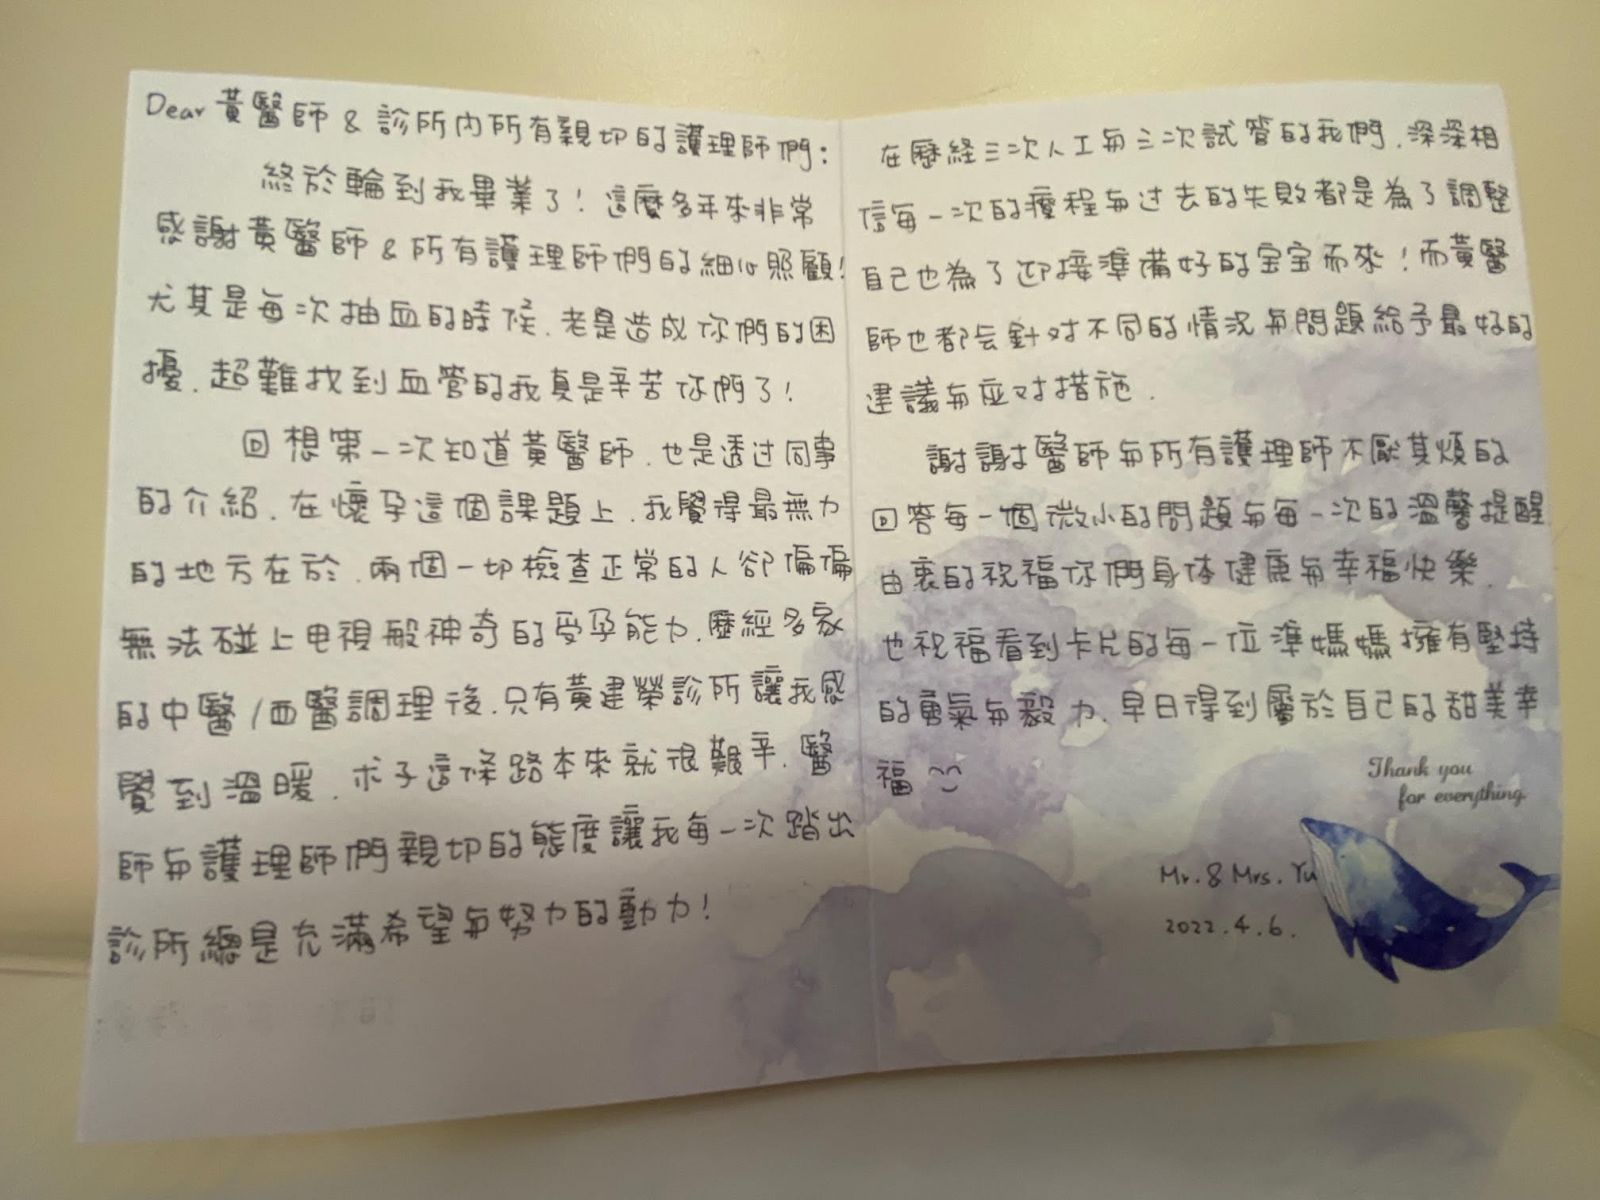 Dear 黃醫師 & 診所內所有親切的護理師們：
終於輪到我畢業了！這麼多年來非常
感謝黃醫師 & 所有護理師們的細心照顧！
尤其是每次抽血的時候、老是造成你們的困
擾、超難找到血管的我真是辛苦你們了！
回想第一次知道黃醫師、也是透过同事
的介紹、在懷孕這個課題上、我覺得最無力
的地方在於、兩個一切檢查正常的人卻偏偏
無法碰上电視般神奇的受孕能力、歷經多家
的中醫/西醫調理後、只有黃建榮診所讓我感
覺到溫暖、求子這條路本來就很艱辛、醫
師与護理師們親切的態度讓我每一次踏出
診所總是充滿希望与努力的動力！
在歷経三次人工与三次試管的我們、深深相
信每一次的療程与过去的失敗都是為了調整
自己也為了迎接準備好的宝宝而來！而黃醫
師也都会針对不同的情況与問題給予最好的
建議与应对措施．
謝謝醫師与所有護理師不厭其煩的
回答每一個微小的問題与每一次的溫馨提醒
由衷的祝福你們身体健康与幸福快樂．
也祝福看到卡片的每一位準媽媽擁有堅持
的勇氣与毅力、早日得到屬於自己的甜美幸
福
Thank you
for everything.
Mr. & Mrs. Yu
2022.4.6.